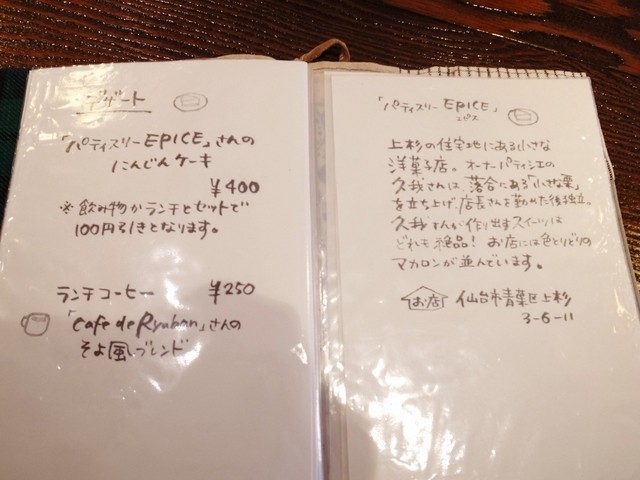 デザート
「パティスリーEPICE」さんの
にんじんケーキ
¥400
※飲み物かランチとセットで
100円引きとなります。
ランチコーヒー ¥250
「cafe de Ryuban」さんの
そよ風ブレンド
「パティスリーEPICE」
エピス
上杉の住宅地にある小さな
洋菓子店。オーナーパティシエの
久我さんは、落合にある「小さな栗」
を立ち上げ、店長さんを勤めた後独立。
久我さんが作り出すスイーツは
どれも絶品! お店には色とりどりの
マカロンが並んでいます。
お店 仙台市青葉区上杉
3-6-11